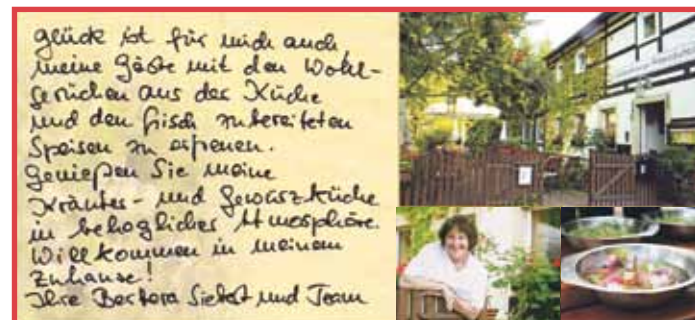 Glück ist für mich auch,
meine Gäste mit den Wohl-
gerüchen aus der Küche
und den frisch zubereiteten
Speisen zu erfreuen.
Genießen Sie meine
Kräuter- und Gewürzküche
in behaglicher Atmosphäre.
Willkommen in meinem
Zuhause!
Ihre Barbara und Team